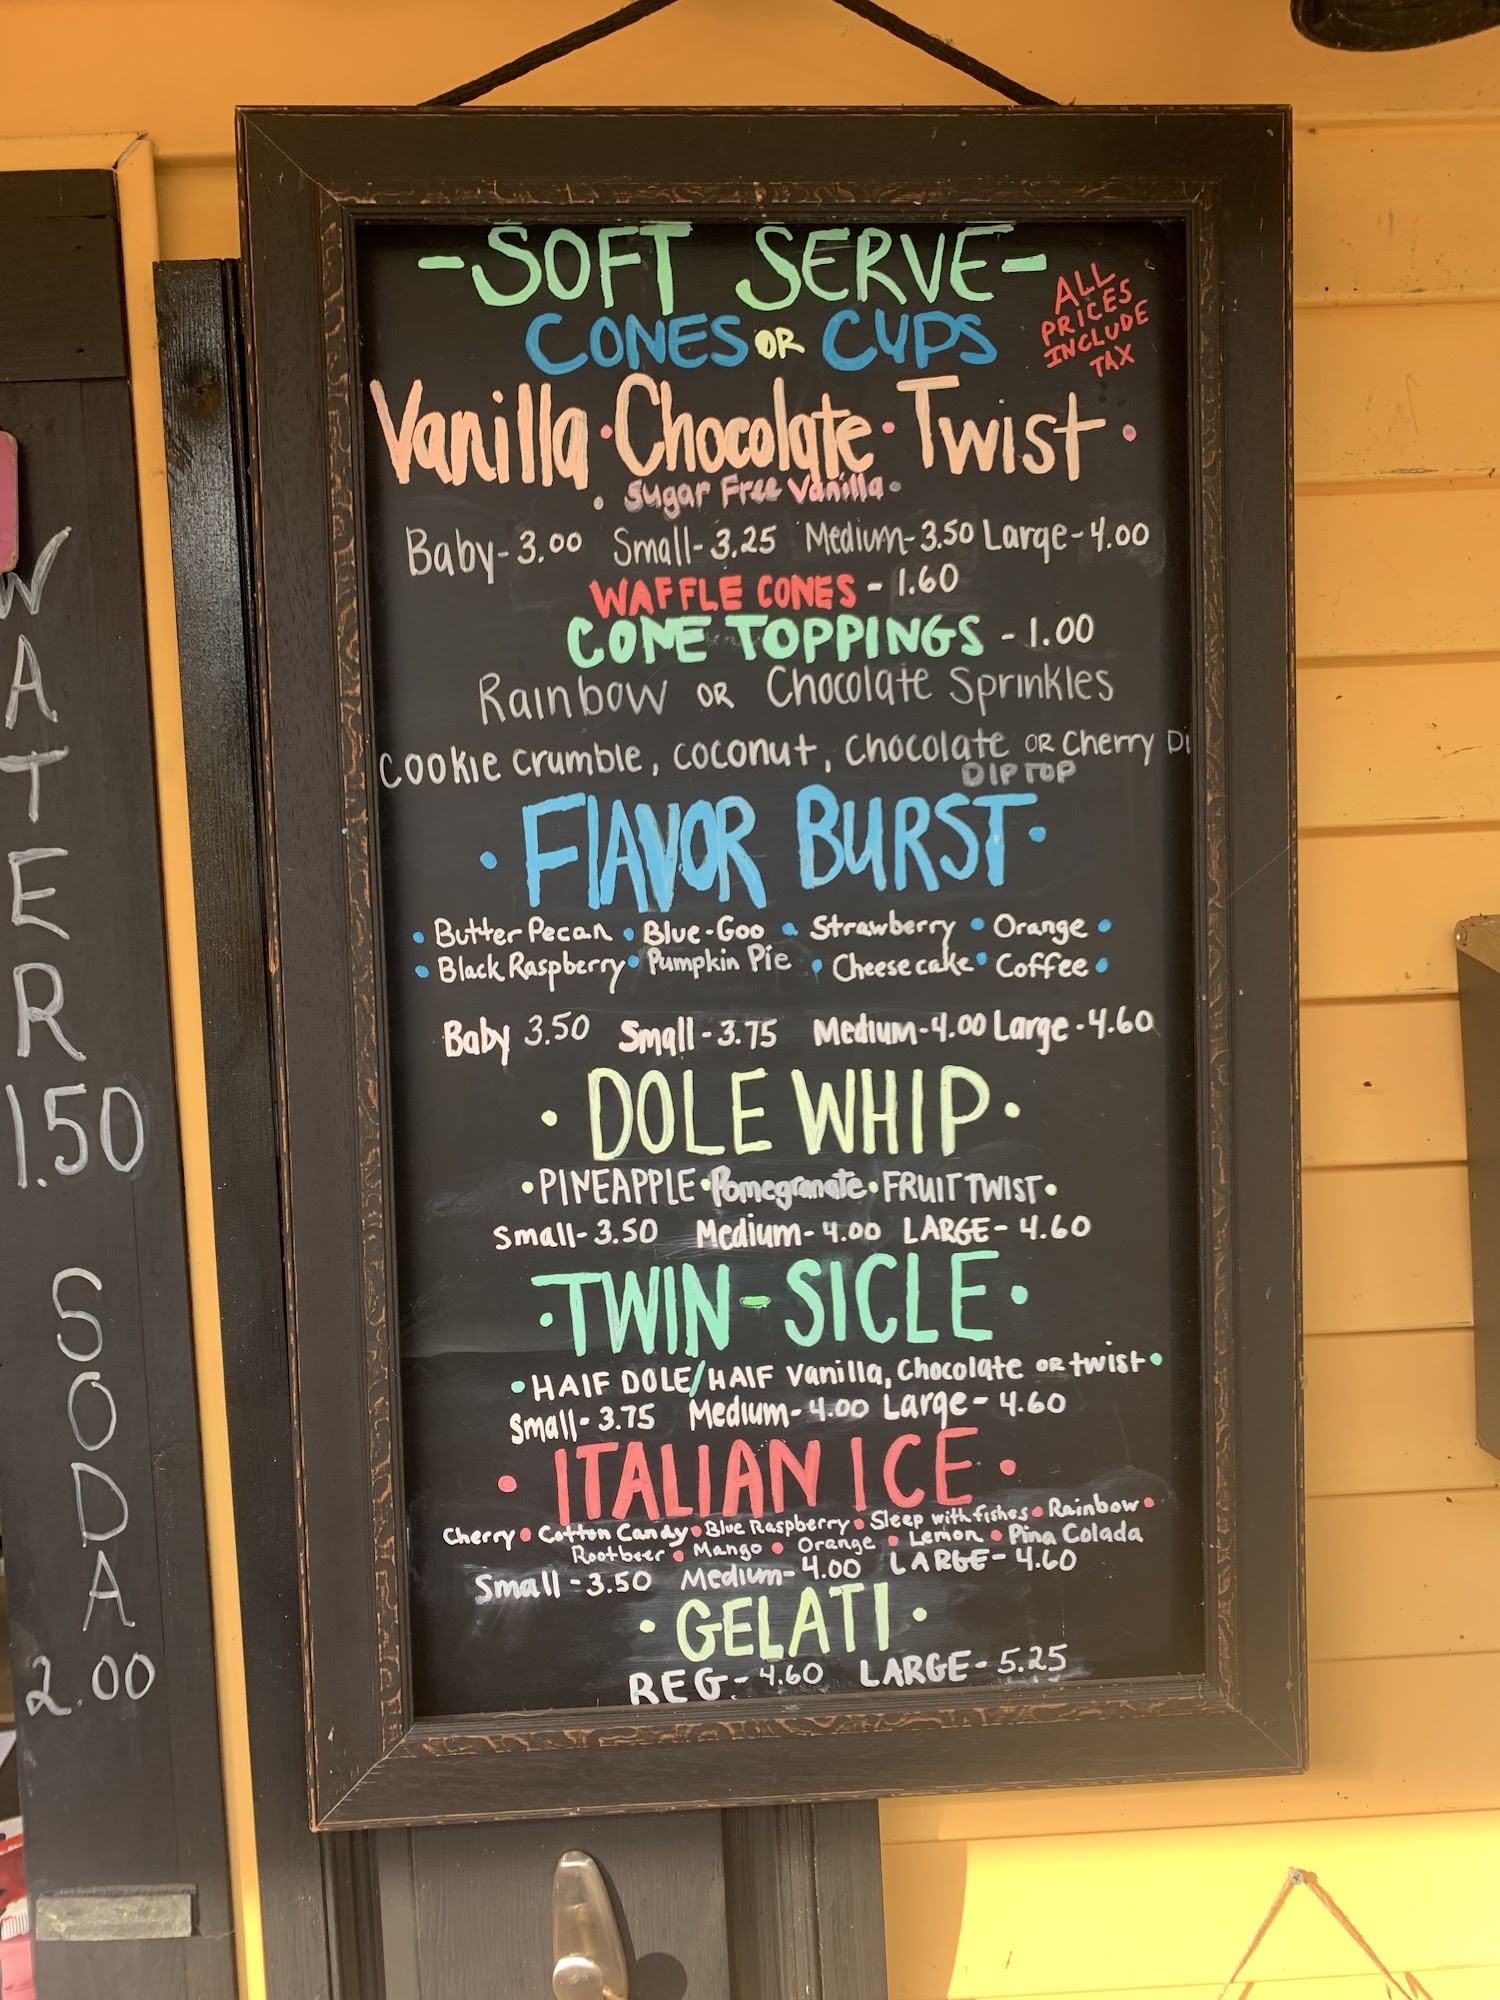 - SOFT SERVE -
CONES OR CUPS
ALL
PRICES
INCLUDE
TAX
Vanilla • Chocolate • Twist •
• Sugar Free Vanilla •
Baby - 3.00 Small - 3.25 Medium - 3.50 Large - 4.00
WAFFLE CONES - 1.60
CONE TOPPINGS - 1.00
Rainbow OR Chocolate Sprinkles
Cookie Crumble, coconut, Chocolate OR Cherry Di
DIP TOP
• FLAVOR BURST •
• Butter Pecan • Blue-Goo • Strawberry • Orange •
• Black Raspberry • Pumpkin Pie • Cheesecake • Coffee •
Baby 3.50 Small - 3.75 Medium - 4.00 Large - 4.60
• DOLE WHIP •
• PINEAPPLE • Pomegranate • FRUIT TWIST •
Small - 3.50 Medium - 4.00 LARGE - 4.60
• TWIN - SICLE •
• HALF DOLE/HALF Vanilla, Chocolate OR twist •
Small - 3.75 Medium - 4.00 Large - 4.60
• ITALIAN ICE •
Cherry • Cotton Candy • Blue Raspberry • Sleep with fishes • Rainbow •
Rootbeer • Mango • Orange • Lemon • Pina Colada
Small - 3.50 Medium - 4.00 LARGE - 4.60
• GELATI •
REG - 4.60 LARGE - 5.25
WATER
1.50
SODA
2.00